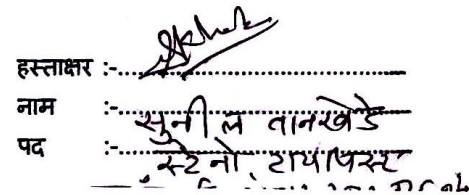 हस्ताक्षर :-
नाम :- सुनील वानखेडे
पद :- स्टेनो टायपिस्ट